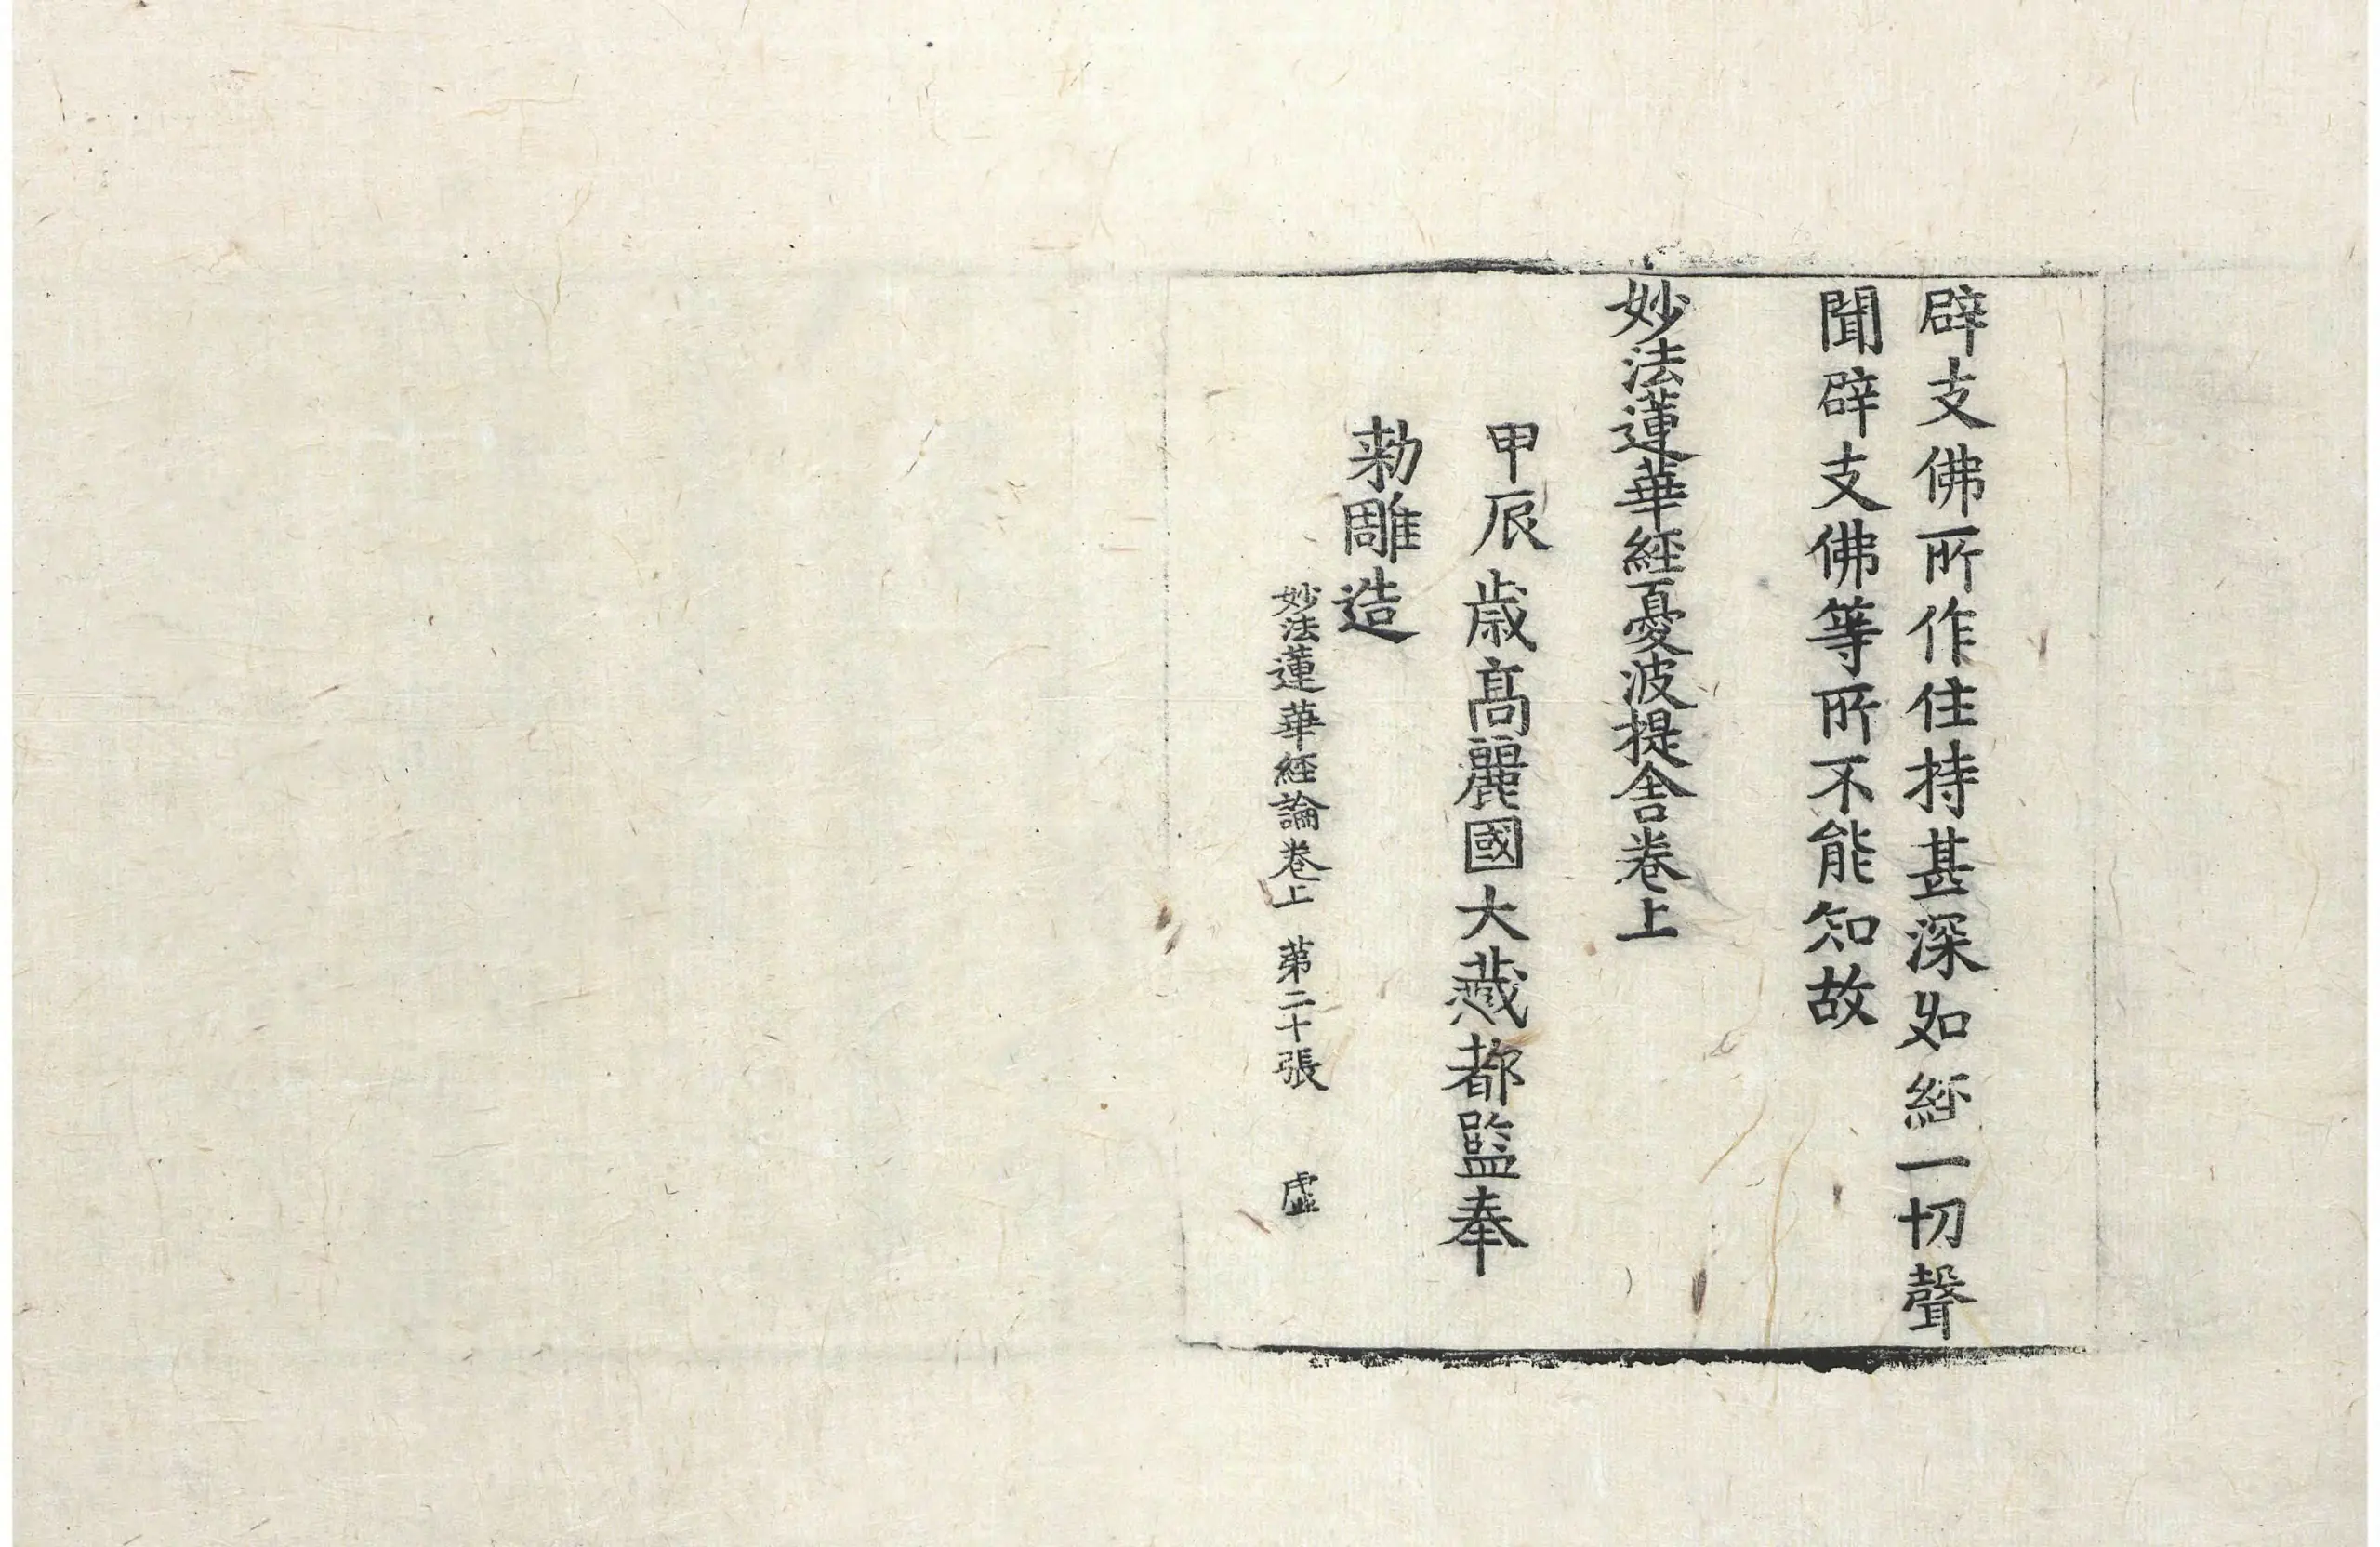 辟支佛所作住持甚深如經一切聲
聞辟支佛等所不能知故
妙法蓮華經憂波提舍卷上
甲辰歲高麗國大藏都監奉
勅雕造
妙法蓮華經論卷上 第二十張 虛